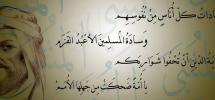 سادات كل أناس من نفوسهم
وسادة المسلمين الأعبد القزم
الذين أن تحفوا شواربكم
يا أمة ضحكت من جهلها الأمم